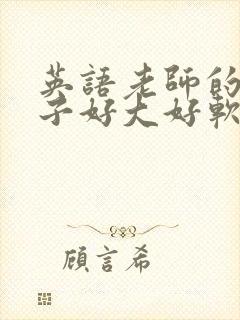 英語老師的
子好大好軟
顧言希